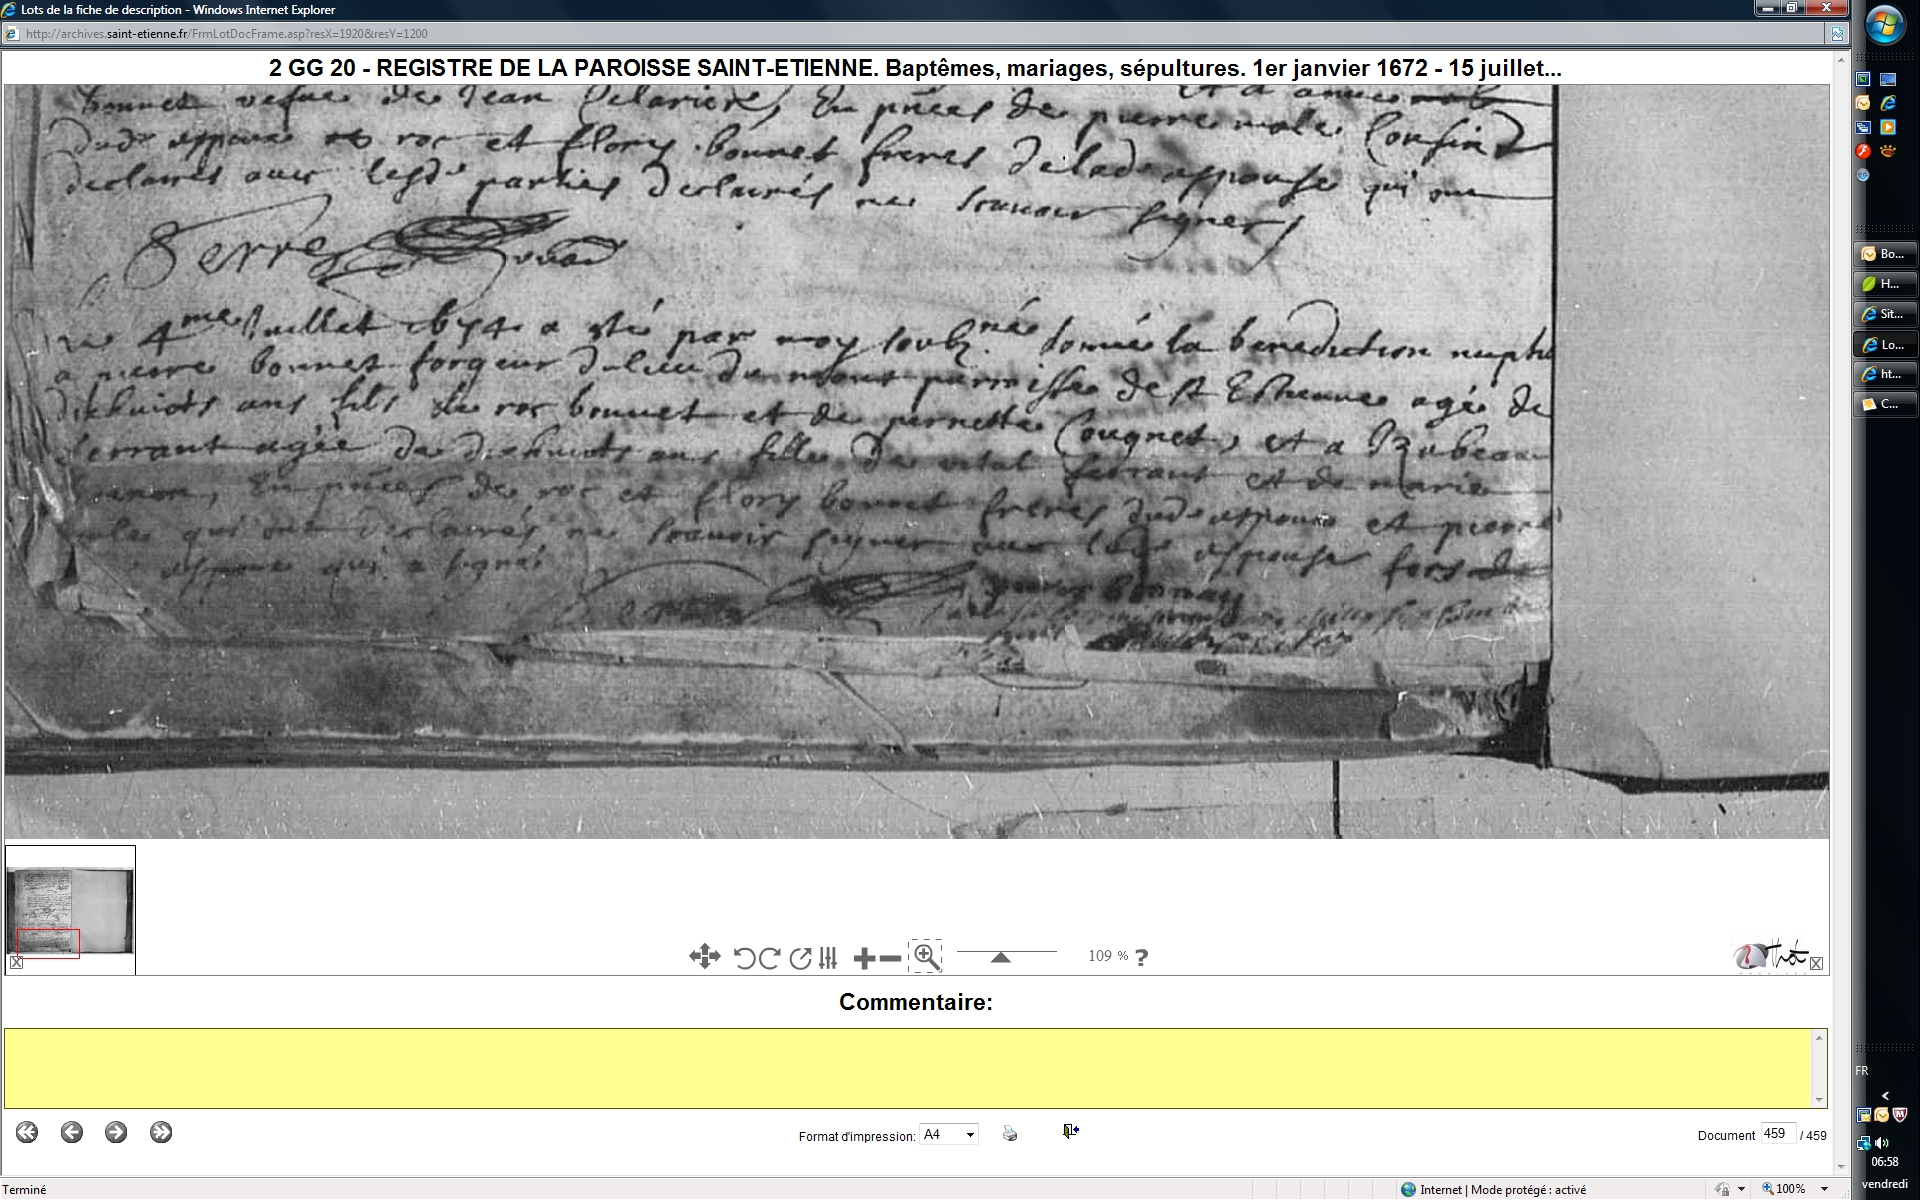 Lots de la fiche de description - Windows Internet Explorer
http://archives.saint-etienne.fr/FrmLotDocFrame.asp?resX=1920&resY=1200
2 GG 20 - REGISTRE DE LA PAROISSE SAINT-ETIENNE. Baptêmes, mariages, sépultures. 1er janvier 1672 - 15 juillet...
bonnet vefue de Jean En pnces de pierre molle Consin
dud espoux roc et flory bonnet freres de lad espouse qui ont
declairés auec lesd parties declairés ne scauoir signer
Ferre
4me Juillet 1674 a esté par moy soubzné donné la benediction nupti
a pierre bonnet forgeur du lieu du mont parroisse de st Estienne agé de
dixhuicts ans fils de roc bonnet et de pernette Cougnet, et a Izabeau
ferrant agée de dixhuicts ans fille de vital ferrant et de marie
En pnces de roc et flory bonnet freres dud espoux et pierre
qui ont declairés ne scauoir signer auec lad espouse fors
espoux qui a signé
109 % ?
Commentaire:
Format d'impression: A4
Document 459 / 459
Terminé
Internet | Mode protégé : activé
100%
Bo...
H...
Sit...
Lo...
ht...
C...
FR
06:58
vendredi